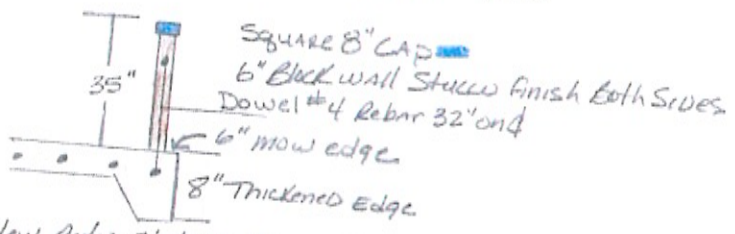 Square 8" CAP
35"
6" Block wall Stucco finish Both Sides
Dowel #4 Rebar 32" on ¢
6" mow edge
8" Thickened Edge